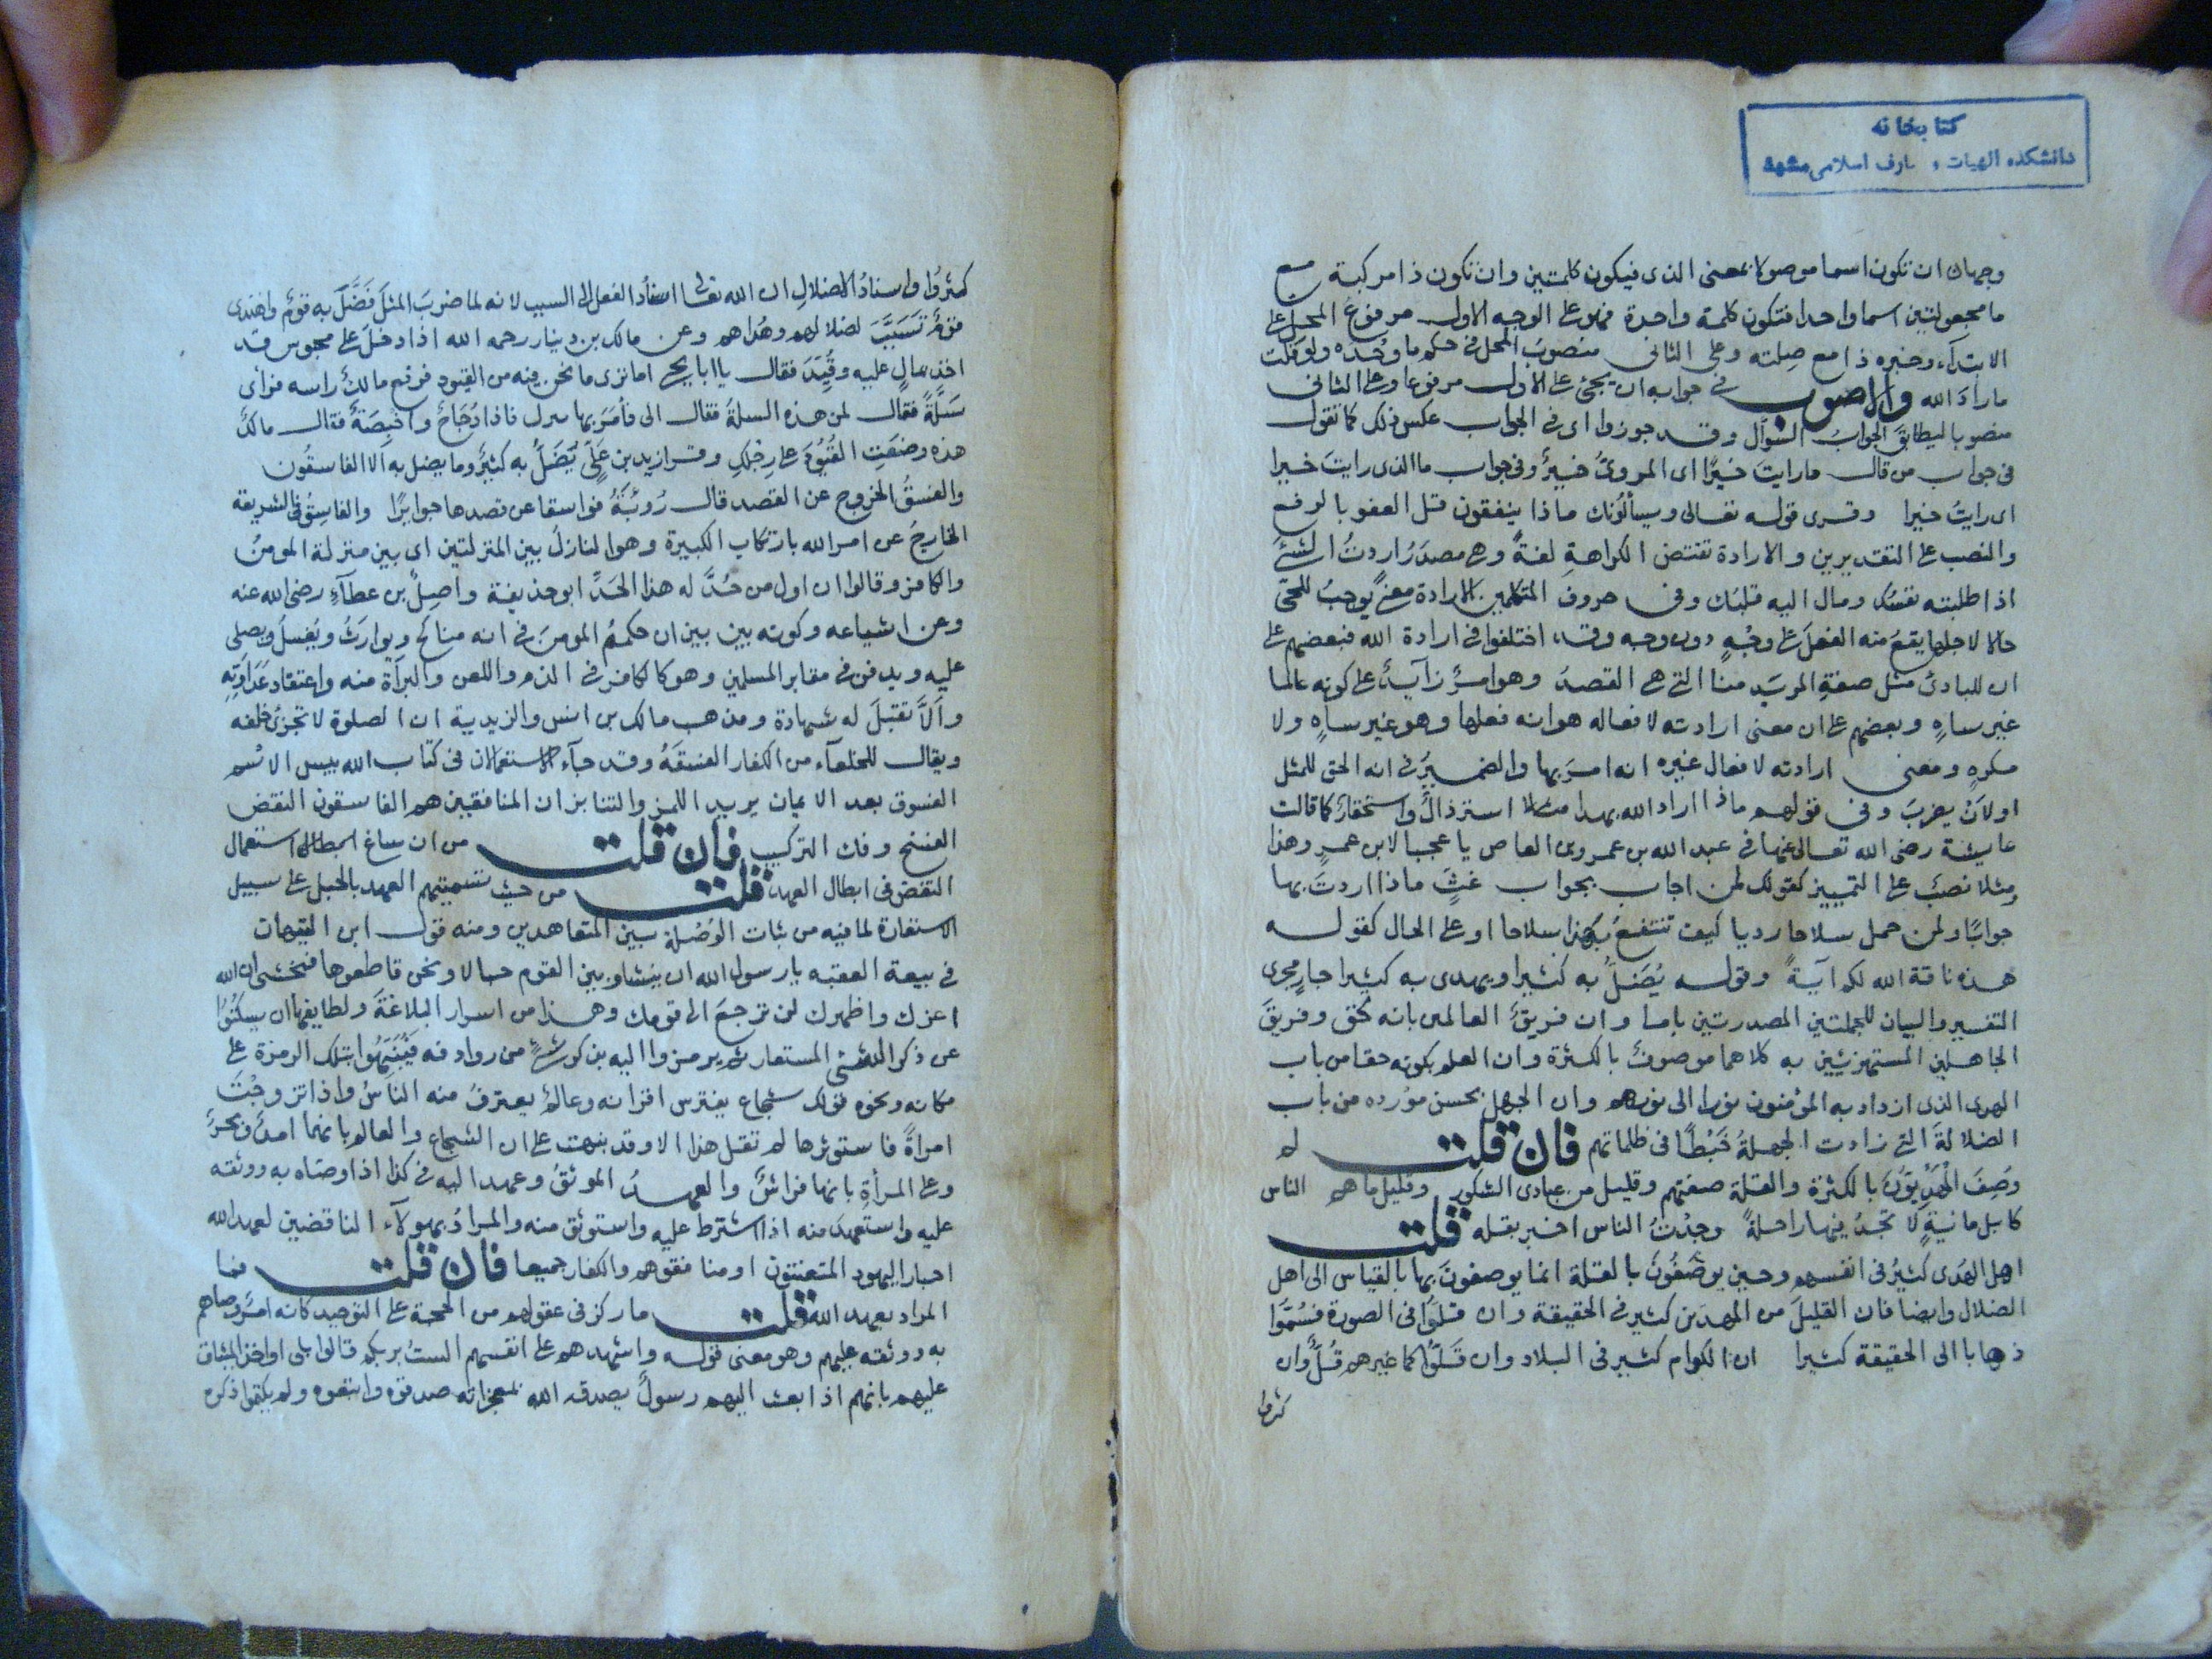 كتابخانه
دانشكده الهيات و معارف اسلامى مشهد
وجهان ان تكون اسما موصولا بمعنى الذى فيكون كلمتين وان تكون ذا مركبة مع
ما مجعولتين اسما واحدا فتكون كلمة واحدة فهو على الوجه الاول مرفوع المحل على
الابتدآء وخبره ذا مع صلته وعلى الثانى منصوب المحل فى حكم ما وحده ولو قلت
ما راد الله والاصوب فى جوابه ان يجئ على الاول مرفوعا وعلى الثانى
منصوبا ليطابق الجواب السؤال وقد جوزوا اى فى الجواب عكس ذلك كما تقول
فى جواب من قال ما رايت خيرًا اى المروىّ خيرٌ وفى جواب ما الذى رايت خيرا
اى رايت خيرا وقرى قوله تعالى ويسألونك ماذا ينفقون قل العفو بالرفع
والنصب على التقديرين والارادة تقتض الكراهة لغةً وهى مصدر اردتُ الشئَ
اذا طلبته نفسُك ومال اليه قلبُك وفى حروف المتكلمين الارادة معنىً يوجبُ للحىّ
حالا لاجلها يقع منه الفعل على وجهٍ دون وجه وقد اختلفوا فى ارادة الله فبعضهم على
ان للبارئ مثل صفة المريد منا التى هى القصد وهو امرٌ زآيدٌ على كونه عالما
غير ساهٍ وبعضهم على ان معنى ارادته لافعاله هو انه فعلها وهو غير ساهٍ ولا
مكرهٍ ومعنى ارادته لافعال غيره انه امر بها والضمير فى انه الحق للمثل
او لأن يضرب وفى قولهم ماذا اراد الله بهذا مثلا استرذالٌ واستحقارٌ كما قالت
عايشة رضى الله تعالى عنها فى عبد الله بن عمرو بن العاص يا عجبا لابن عمرٍ وهذا
ومثلا نصبٌ على التمييز كقولك لمن اجاب بجواب غثٍ ماذا اردتَ بها
جوابًا ولمن حمل سلاحا رديا كيف تنتفع بهذا سلاحا او على الحال كقوله
هذه ناقة الله لكم آيةً وقوله يُضَلُّ به كثيرا ويهدى به كثيرا جارٍ مجرى
التفسير والبيان للجملتين المصدرتين باما وان فريق العالمين بانه حق وفريق
الجاهلين المستهزئين به كلاهما موصوفٌ بالكثرة وان العلم بكونه حقا من باب
الهدى الذى ازداد به المؤمنون نورا الى نورهم وان الجهل بحسن مورده من باب
الضلالة التى زادت الجهلةُ خَبْطًا فى ظلماتهم فان قلت لم
وصف المهديّون بالكثرة والقلة صفتهم وقليل من عبادى الشكور وقليل ما هم الناس
كابل مائيةٍ لا تجدُ فيها راحلةً وجدتُ الناس اخبر بقله قلت
اهل الهدى كثيرٌ فى انفسهم وحين يوصفون بالقلة انما يوصفون بها بالقياس الى اهل
الضلال وايضا فان القليل من المهدين كثير فى الحقيقة وان قلوا فى الصورة فسُمُّوا
ذهابا الى الحقيقة كثيرا ان الكرام كثير فى البلاد وان قَلّوا كما غيرهم قلٌّ وان
كثروا
كثروا واسناد الاضلال ان الله تعالى اسناد الفعل الى السبب لانه لما ضرب المثل فَضَلَّ به قومٌ واهتدى
قومٌ تَسَبَّبَ لضلالهم وهداهم وعن مالك بن دينار رحمه الله اذا دخل على محبوس قد
اخذ بمالٍ عليه وقُيِّدَ فقال يا ابا يحيى اما ترى ما نحن فيه من القيود فرفع مالكٌ راسه فرأى
سَلَّةً فقال لمن هذه السلة فقال الى فأمر بها تنزل فاذا دجاجٌ واخبصةٌ فقال مالكٌ
هذه وضعتِ القيود على رجلك وقرا زيد بن علىٍّ يُضَلُّ به كثيرٌ وما يضل به الا الفاسقون
والفسقُ الخروج عن القصد قال رُؤبَةُ فواسقا عن قصدها جوايرًا والفاسق فى الشريعة
الخارج عن امر الله بارتكاب الكبيرة وهو النازلُ بين المنزلتين اى بين منزلة المومن
والكافر وقالوا ان اول من حُدَّ له هذا الحَدِّ ابو حذيفة واصلُ بن عطآءٍ رضى الله عنه
وعن اشياعه وكونه بين بين ان حكمهُ المومن فى انه مناكح ويوارثُ ويُغسلُ ويصلى
عليه ويدفن فى مقابر المسلمين وهو كالكافر فى الذم واللعن والبرآة منه واعتقاد عداوتِهِ
وألاّ تقبل له شهادة ومذهب مالك بن انس والزيدية ان الصلوة لا تجزئ خلفه
ويقال للخلعآء من الكفار الفسقةُ وقد جآء الاستعمالان فى كتاب الله بيس الاسم
الفسوق بعد الايمان يريد اللمز والتنابز ان المنافقين هم الفاسقون النقض
الفسخ وفك التركيب فان قلت من ان ساغ استعمال
النقض فى ابطال العهد قلت من حيث تسميتهم العهد بالحبل على سبيل
الاستعارة لما فيه من ثبات الوصلة بين المتعاهدين ومنه قول ابن التيهان
فى بيعة العقبه يا رسول الله ان بيننا وبين القوم حبالا ونحن قاطعوها فنخشى ان الله
اعزك واظهرك ان ترجع الى قومك وهذا من اسرار البلاغة ولطايفها ان يسكتوا
عن ذكر الشئ المستعار ثم يرمزوا اليه بذكر شئٍ من روادفه فيُنَبِّهوا بتلك الرمزة على
مكانه ونحوه قولك شجاع يفترس اقرانه وعالمٌ يعترفُ منه الناسُ واذا تزوجْتَ
امراةً فاستوثرها لم تقل هذا الا وقد نبهت على ان الشجاع والعالم بانهما اسدٌ وبحرٌ
وعلى المرأةِ بانها فراشٌ والعهدُ الموثقُ وعهد اليه فى كذا اذا وصّاه به ووثقه
عليه واستعهد منه اذا اشترط عليه واستوثق منه والمرادُ بهولآء الناقضين لعهد الله
احبار اليهود المتعنتون او منافقوهم والكفار جميعا فان قلت فما
المراد بعهد الله قلت ما ركز فى عقولهم من الحجة على التوحيد كانه امرٌ وصاهم
به ووثقه عليهم وهو معنى قوله واشهدهم على انفسهم الستُ بربكم قالوا بلى او اخذ الميثاق
عليهم بانهم اذا بعث اليهم رسولٌ يصدقه الله بمعجزاته صدقوه واتبعوه ولم يكتموا ذكره